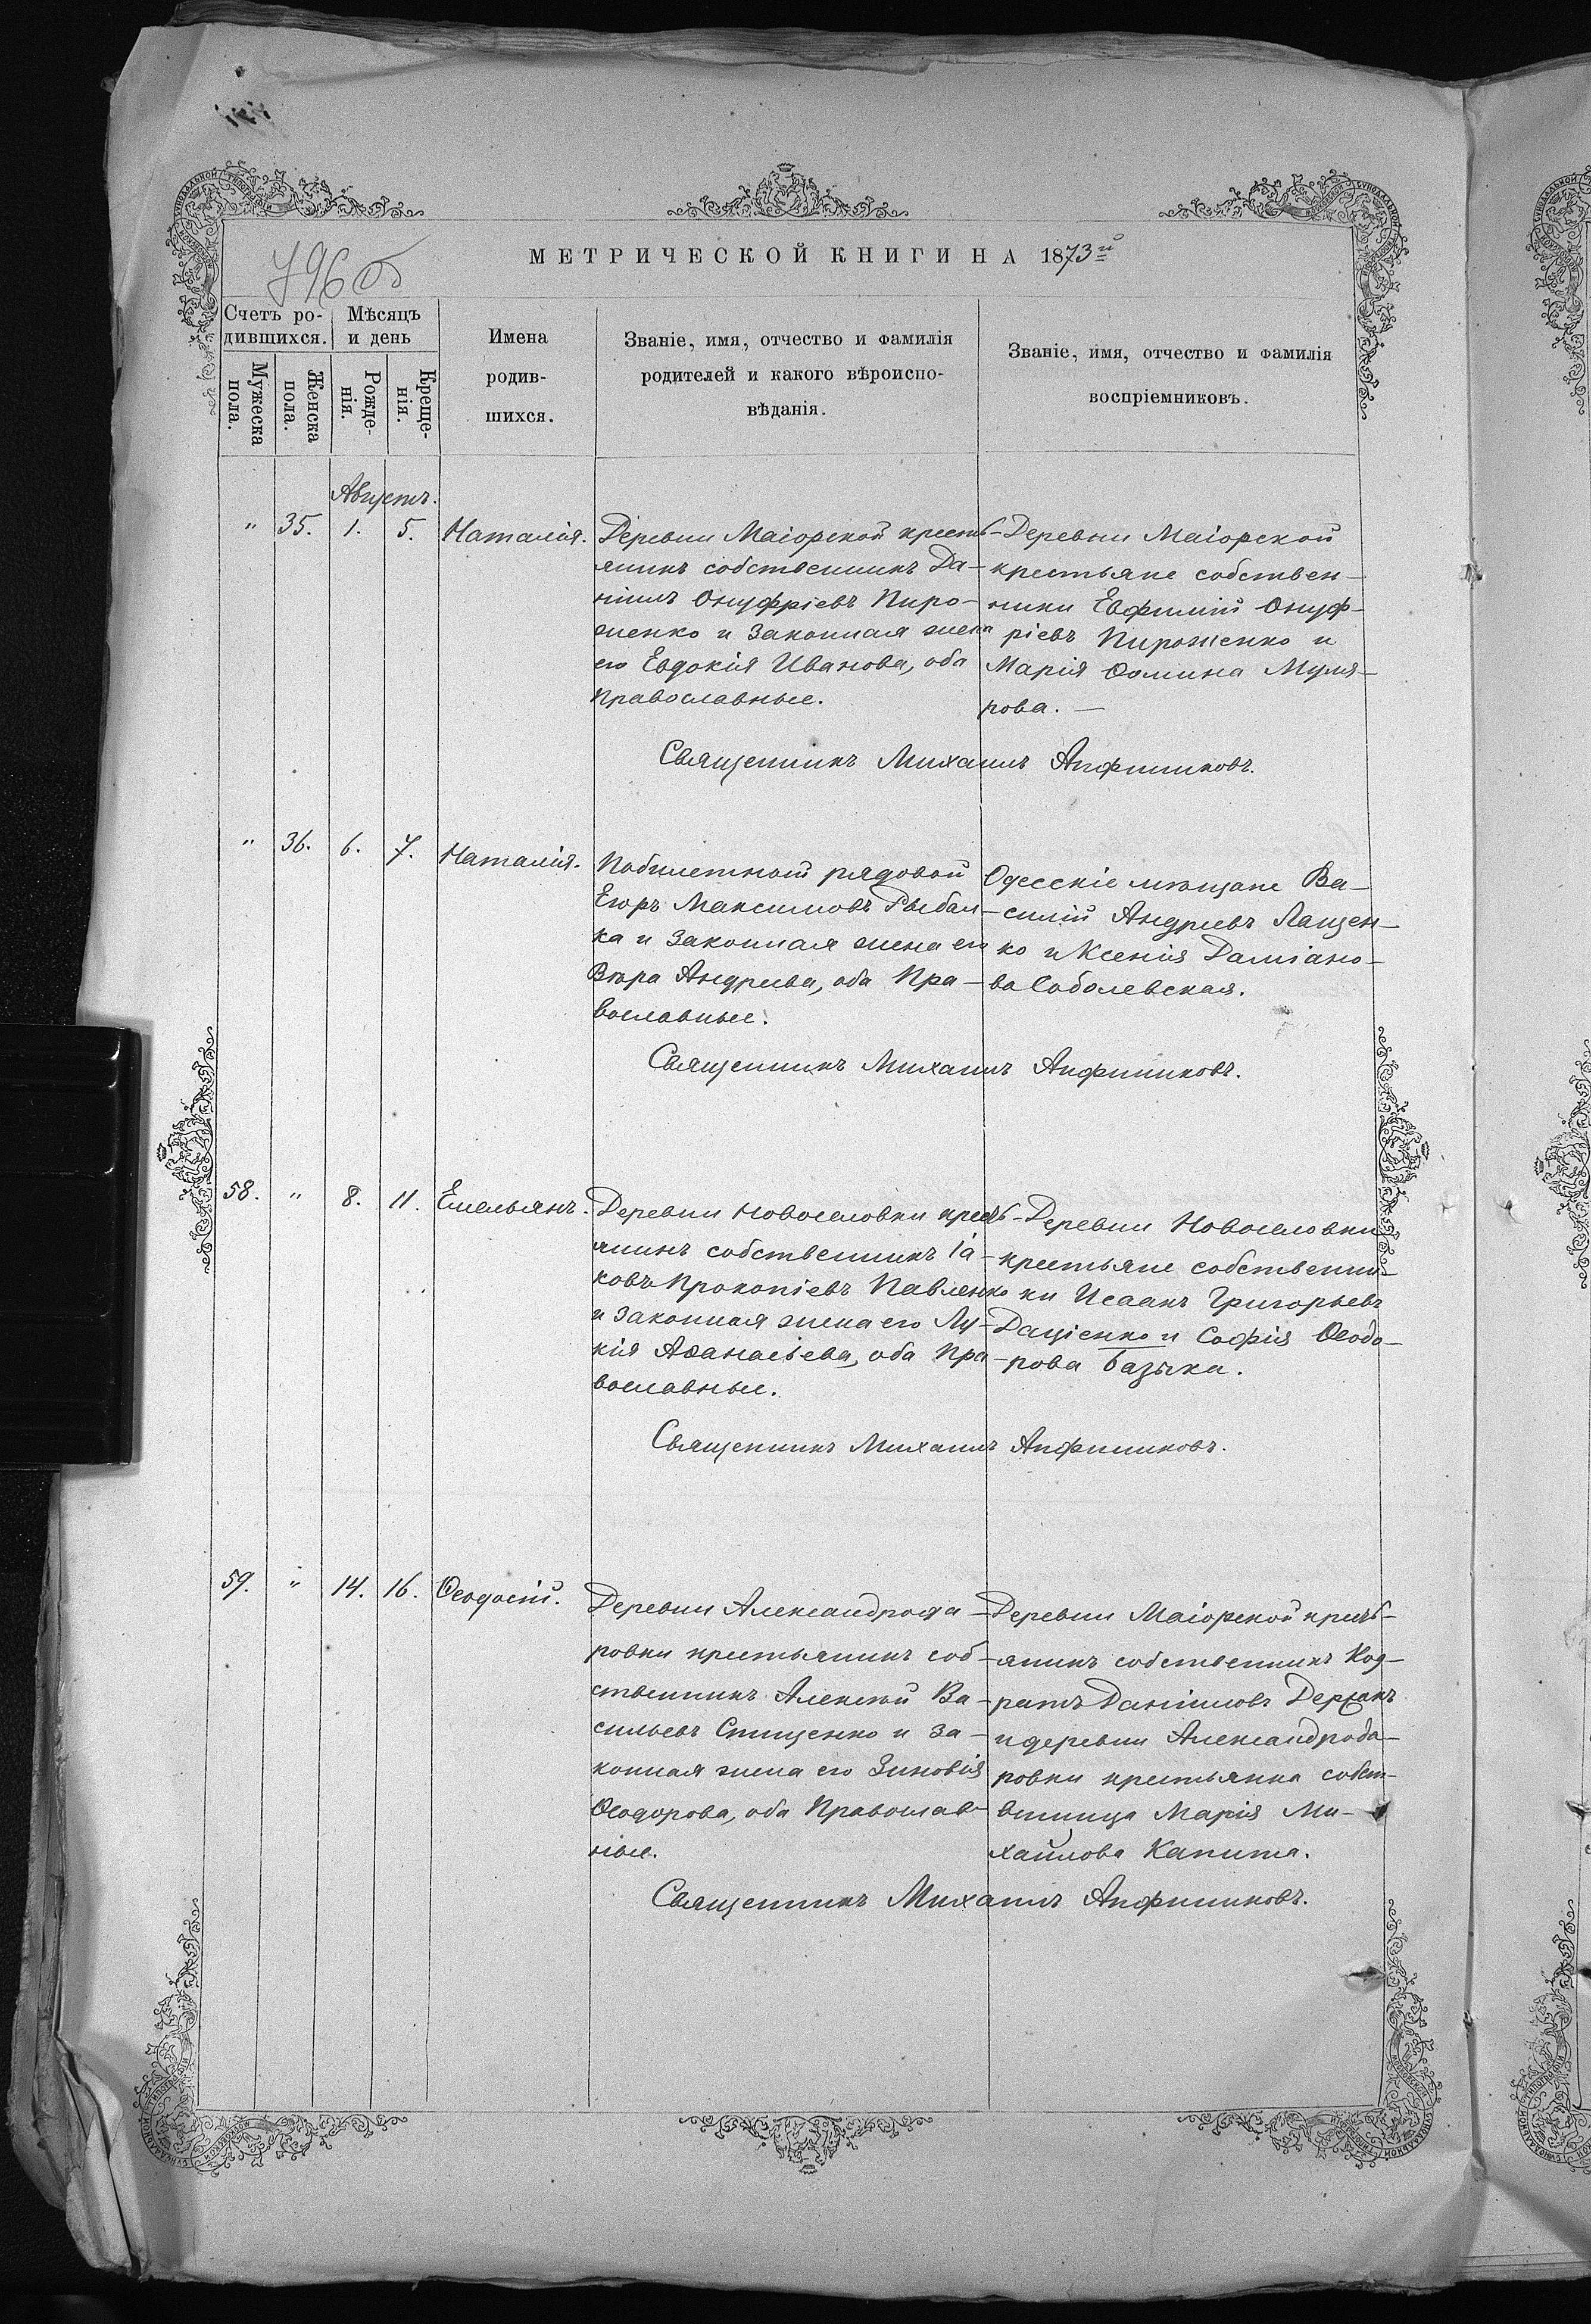 796 об
МЕТРИЧЕСКОЙ КНИГИ НА 1873й
Счетъ ро-
дившихся.
Мѣсяцъ
и день
Мужеска
пола.
Женска
пола.
Рожде-
нія.
Креще-
нія.
Имена
родив-
шихся.
Званіе, имя, отчество и фамилія
родителей и какого вѣроиспо-
вѣданія.
Званіе, имя, отчество и фамилія
воспріемниковъ.
Августъ.
" 35. 1. 5. Наталія.
Деревни Маіорской кресть-
янинъ собственникъ Да-
ніилъ Онуфріевъ Пиро-
женко и законная жена
его Евдокія Иванова, оба
Православные.
Деревни Маіорской
крестьяне собствен-
ники Евфимій Онуф-
ріевъ Пироженко и
Марія Ѳомина Муля-
рова. —
Священникъ Михаилъ Анфиниковъ.
" 36. 6. 7. Наталія.
Побилетный рядовой
Егоръ Максимовъ Рыбал-
ка и законная жена его
Вѣра Андреева, оба Пра-
вославные.
Одесскіе мѣщане Ва-
силій Андреевъ Лащен-
ко и Ксенія Даміано-
ва Соболевская.
Священникъ Михаилъ Анфиниковъ.
58. " 8. 11. Емельянъ.
Деревни Новоселовки кресть-
янинъ собственникъ Іа-
ковъ Прокопіевъ Павленко
и законная жена его Лу-
кія Аѳанасьева, оба Пра-
вославные.
Деревни Новоселовки
крестьяне собственни-
ки Исаакъ Григорьевъ
Даціенко и Софія Ѳеодо-
рова Базыка.
Священникъ Михаилъ Анфиниковъ.
59. " 14. 16. Ѳеодосій.
Деревни Александрода-
ровки крестьянинъ соб-
ственникъ Алексѣй Ва-
сильевъ Спищенко и за-
конная жена его Зиновія
Ѳеодорова, оба Православ-
ные.
Деревни Маіорской кресть-
янинъ собственникъ Код-
ратъ Даніиловъ Держакъ
и деревни Александрода-
ровки крестьянка собст-
венница Марія Ми-
хайлова Капита.
Священникъ Михаилъ Анфиниковъ.